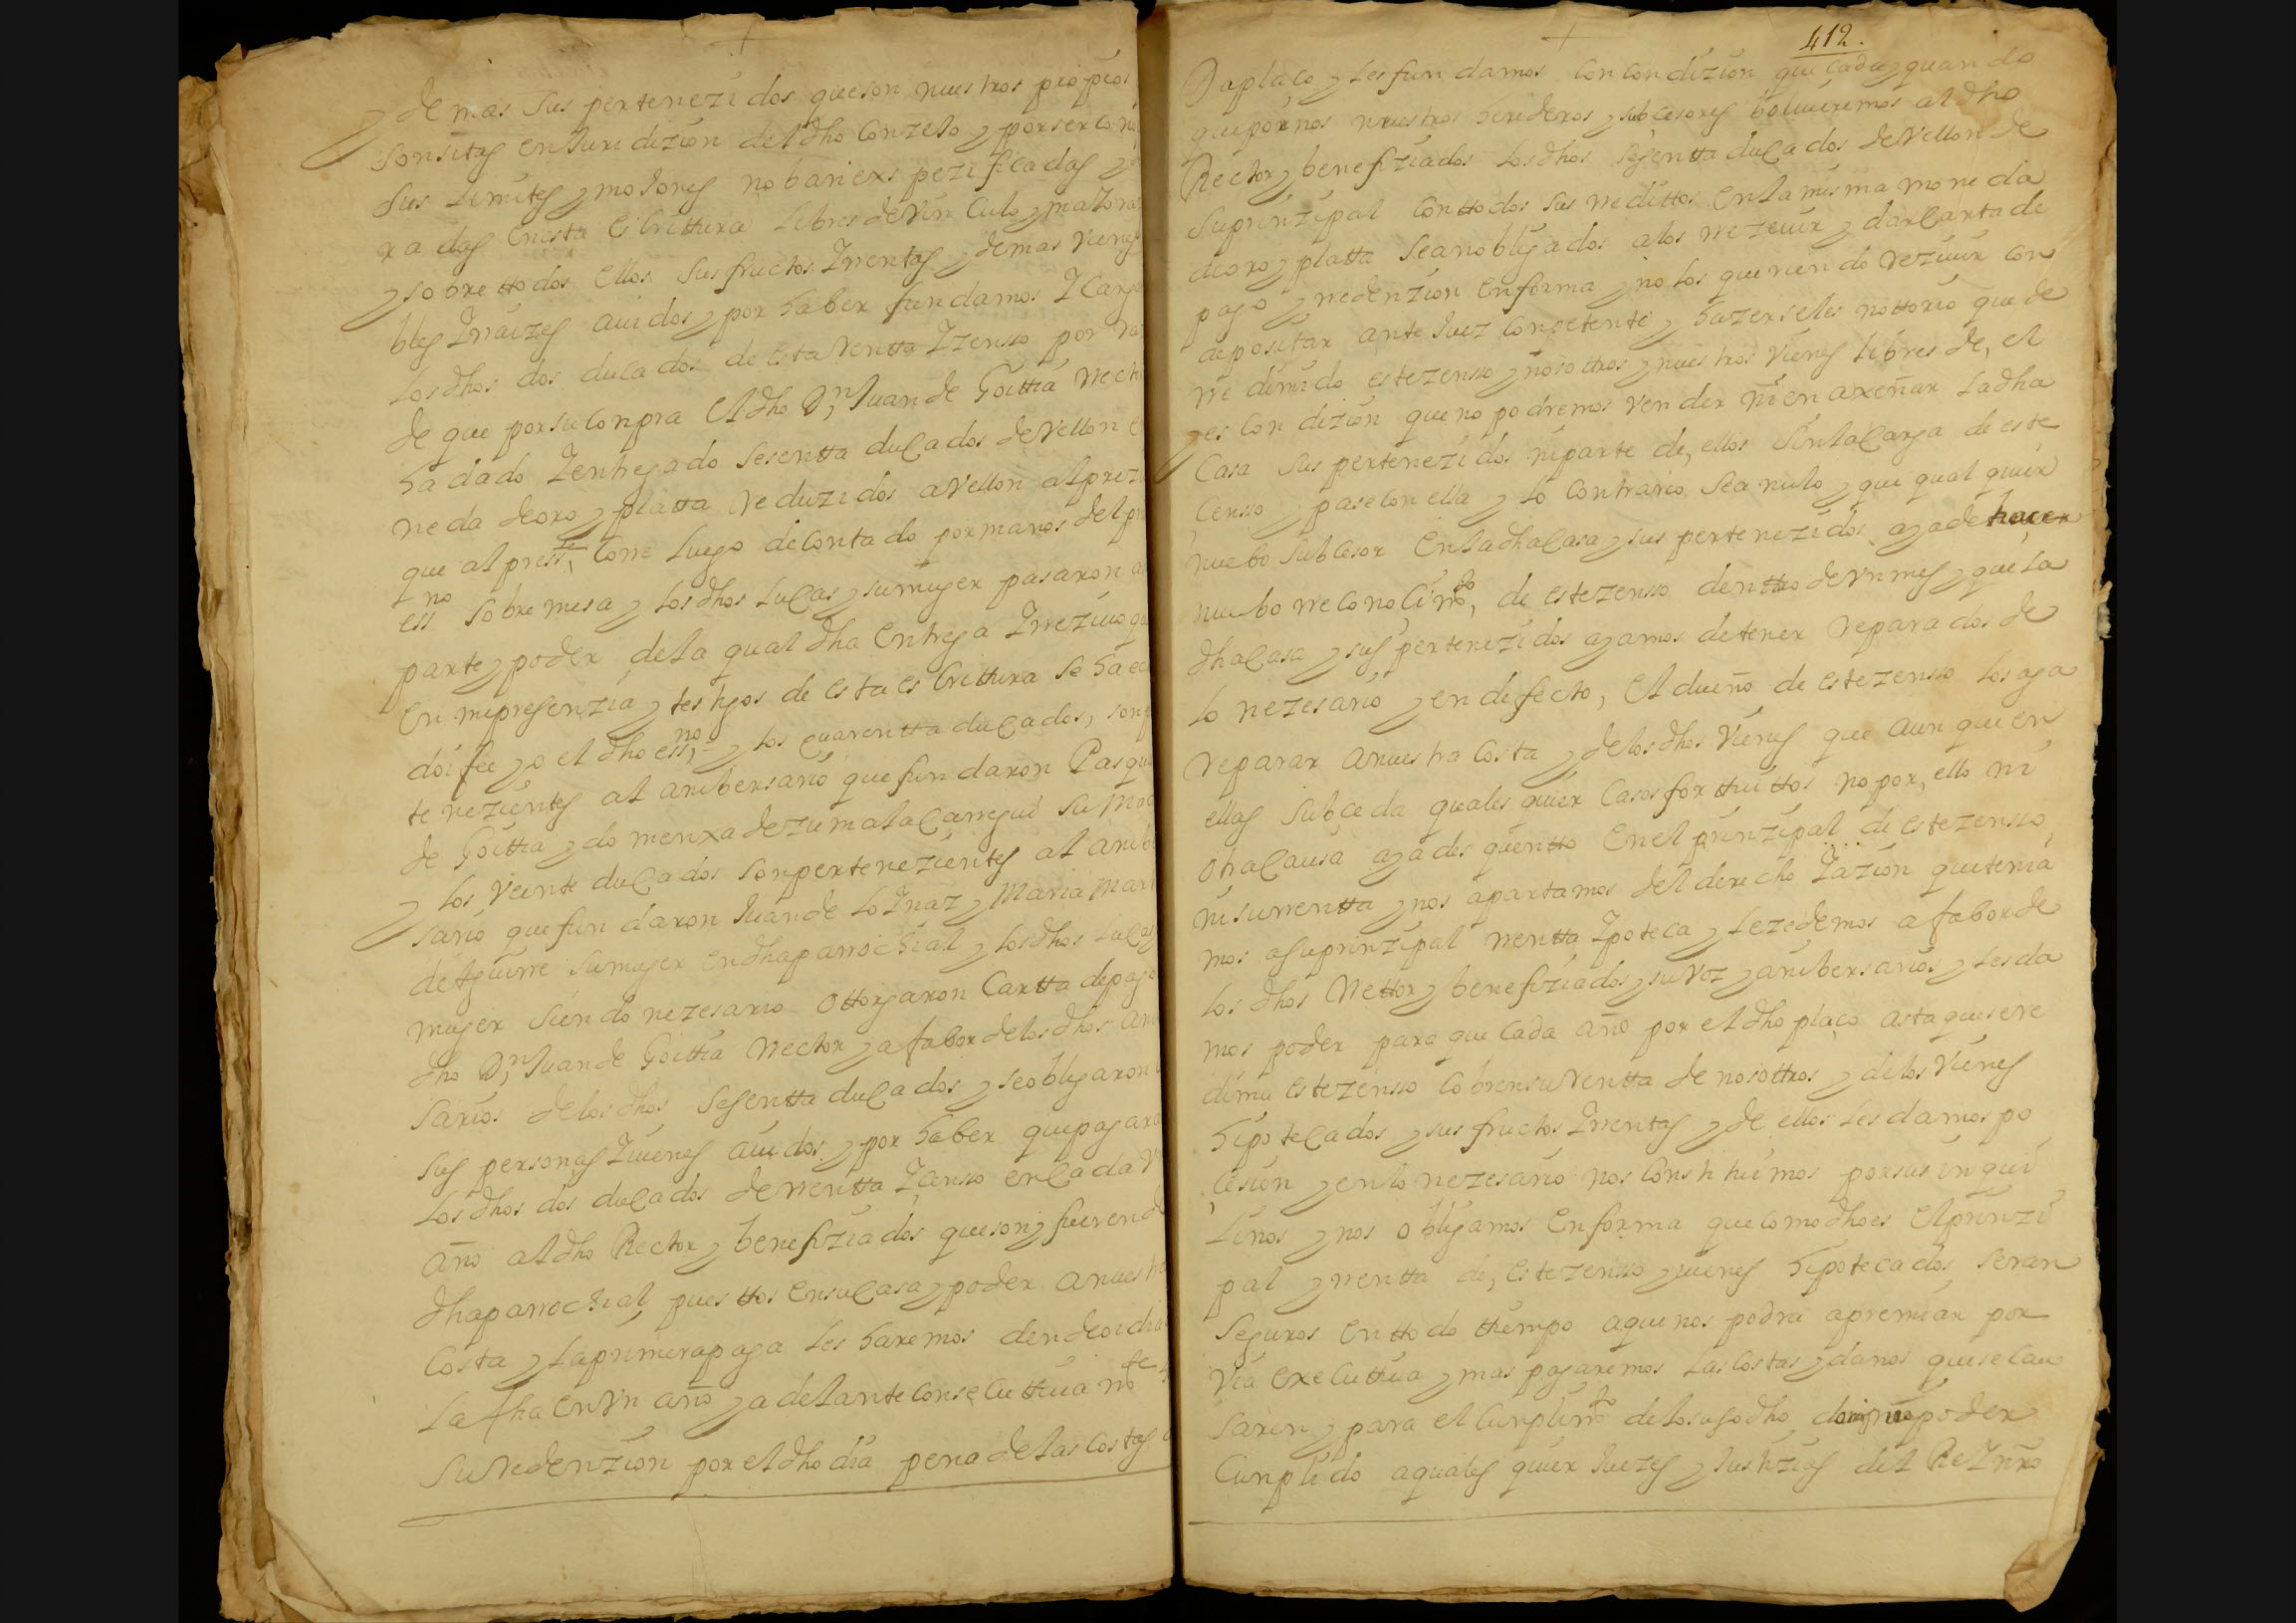 y demas sus pertenezidos que son nuestros propios
son sitas en Juridizion del dho Conzejo y por ser co no
sus limites y mojones no ban expezificadas y
radas en esta escrittura libres de Vinculo y maiora
y sobre ttodos ellos sus fructos Y rrentas y demas vienes
bles Y rraizes auidos y por haber fundamos Y Carga
los dhos dos ducados de esta rentta Y zenso por ra
de que por su conpra el dho Dn Juan de Goittia rrect
ha dado Y entregado sesentta ducados de vellon e
neda de oro y platta reduzidos a vellon al prezi
que al presste corre luego de contado por manos del pre
essno sobre mesa y los dhos Lucas y su muger pasaron a
parte y poder de la qual dha entrega Y rrezivo que
en mi presenzia y testigos de esta escrittura se ha ec
doi fee yo el dho essno y los quarentta ducados, son p
tenezientes al anibersario que fundaron Pasqu
de Goittia y domenxa de zumalacarregui su mad
y los veinte ducados son pertenezientes al anibe
sario que fundaron Juan de Loynaz y Maria Mar
de Aguirre su muger en dha parrochial y los dhos Lucas
muger siendo nezesario ottorgaron Cartta de pago
dho Dn Juan de Goittia rrector y a fabor de los dhos ani
sarios de los dhos sesentta ducados y se obligaron
sus personas Y vienes auidos y por haber que pagara
los dhos dos ducados de rrentta Y censo en cada v
año al dho Rector y benefiziados que son y fueren de
dha parrochial puesttos en su casa y poder a nuestra
costa y la primera paga les haremos dende oi dia
la fha en vn año y adelante consecuttiuamte
su redenzion por el dho dia pena de las costas
412.
Da plaço y les fundamos con condizion que cada y quando
que por nos nuestros herederos y subcesores bolvieremos al dho
Rector y benefiziados los dhos sesentta ducados de vellon de
su prinzipal con ttodos sus rredittos en la misma moneda
de oro y platta sean obligados a los rrezeuir y dar carta de
pago y rredenzion en forma y no los queriendo rezeuir con
depositar ante Juez conpetente y hazerseles nottorio quede
rredimido este zenso y nosottros y nuestros vienes libres de, el
y es condizion que no podremos vender ni enaxenar la dha
Casa sus pertenezidos ni parte de, ellos sin la carga de este
censo y pase con ella y lo contrario sea nulo y que qual quier
nuebo subcesor en la dha casa y sus pertenezidos aya de hacer
nuebo rreconocimto, de este zenso denttro de vn mes y que la
dha Casa y sus pertenezidos ayamos de tener reparados de
lo nezesario y en defecto, el dueño de este zenso los aga
reparar a nuestra costa y de los dhos vienes que aunque en
ellas subceda quales quier casos forttuittos no por, ello ni
otra causa aya desquentto en el prinzipal de este zenso,
ni su rrentta y nos apartamos del derecho Y azion que tenia
mos a su prinzipal rrentta Ypoteca y le zedemos a fabor de
los dhos rrettor y benefiziados y su voz y anibersarios y les da
mos poder para que cada año por el dho plaço asta que se re
dima este zenso cobren su rentta de nosottros y de los vienes
hipotecados y sus fructos Y rrentas y de ellos les damos po
cesion y en lo nezesario nos constituimos por sus inqui
linos y nos obligamos en forma que como dho es el prinzi
pal y rrentta de, este zenso y vienes hipotecados seran
seguros en ttodo ttiempo a que nos podra apremiar por
via executtiua y mas pagaremos las costas y danos que se cau
saren y para el cunplimto de lo suso dho damos poder
Cunplido a quales quier Juezes y Justizias del Rei nro